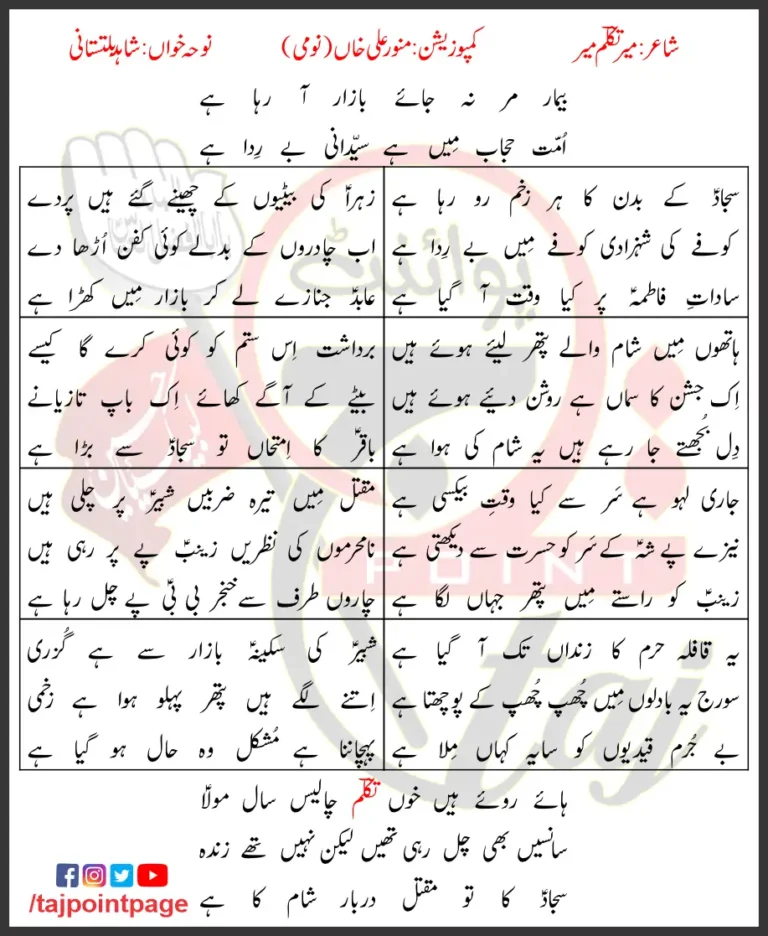 شاعر: میر تکلمؔ میر کمپوزیشن: منور علی خاں (نومی) نوحہ خواں: شاہد بلتستانی
بیمار مر نہ جائے بازار آ رہا ہے
اُمّت حجاب مِیں ہے سیّدانی بے رِدا ہے
سجادؑ کے بدن کا ہر زخم رو رہا ہے
کوفے کی شہزادی کوفے مِیں بے رِدا ہے
ساداتِ فاطمہؑ پر کیا وقت آ گیا ہے
زہراؑ کی بیٹیوں کے چھینے گئے ہیں پردے
اب چادروں کے بدلے کوئی کفن اُڑھا دے
عابدؑ جنازے لے کر بازار مِیں کھڑا ہے
ہاتھوں مِیں شام والے پتھر لیئے ہوئے ہیں
اِک جشن کا سماں ہے روشن دئیے ہوئے ہیں
دِل بُجھتے جا رہے ہیں یہ شام کی ہوا ہے
برداشت اِس ستم کو کوئی کرے گا کیسے
بیٹے کے آگے کھائے اِک باپ تازیانے
باقرؑ کا اِمتحاں تو سجادؑ سے بڑا ہے
جاری لہو ہے سَر سے کیا وقتِ بیکسی ہے
نیزے پے شہؑ کے سَر کو حسرت سے دیکھتی ہے
زینبؑ کو راستے مِیں پتھر جہاں لگا ہے
مقتل مِیں تیرہ ضربیں شبیرؑ پر چلی ہیں
نامحرموں کی نظریں زینبؑ پے پر رہی ہیں
چاروں طرف سے خنجر بی بیؑ پے چل رہا ہے
یہ قافلہ حرم کا زنداں تک آ گیا ہے
سورج یہ بادلوں مِیں چُھپ چُھپ کے پوچھتا ہے
بے جُرم قیدیوں کو سایہ کہاں مِلا ہے
شبیرؑ کی سکینہؑ بازار سے ہے گُزری
اِتنے لگے ہیں پتھر پہلو ہوا ہے زخمی
پہچاننا ہے مُشکل وہ حال ہو گیا ہے
ہائے روئے ہیں خوں تکلمؔ چالیس سال مولاؑ
سانسیں بھی چل رہی تھیں لیکن نہیں تھے زندہ
سجادؑ کا تو مقتل دربار شام کا ہے
پوائنٹ
تاج
POINT
taj
/tajpointpage